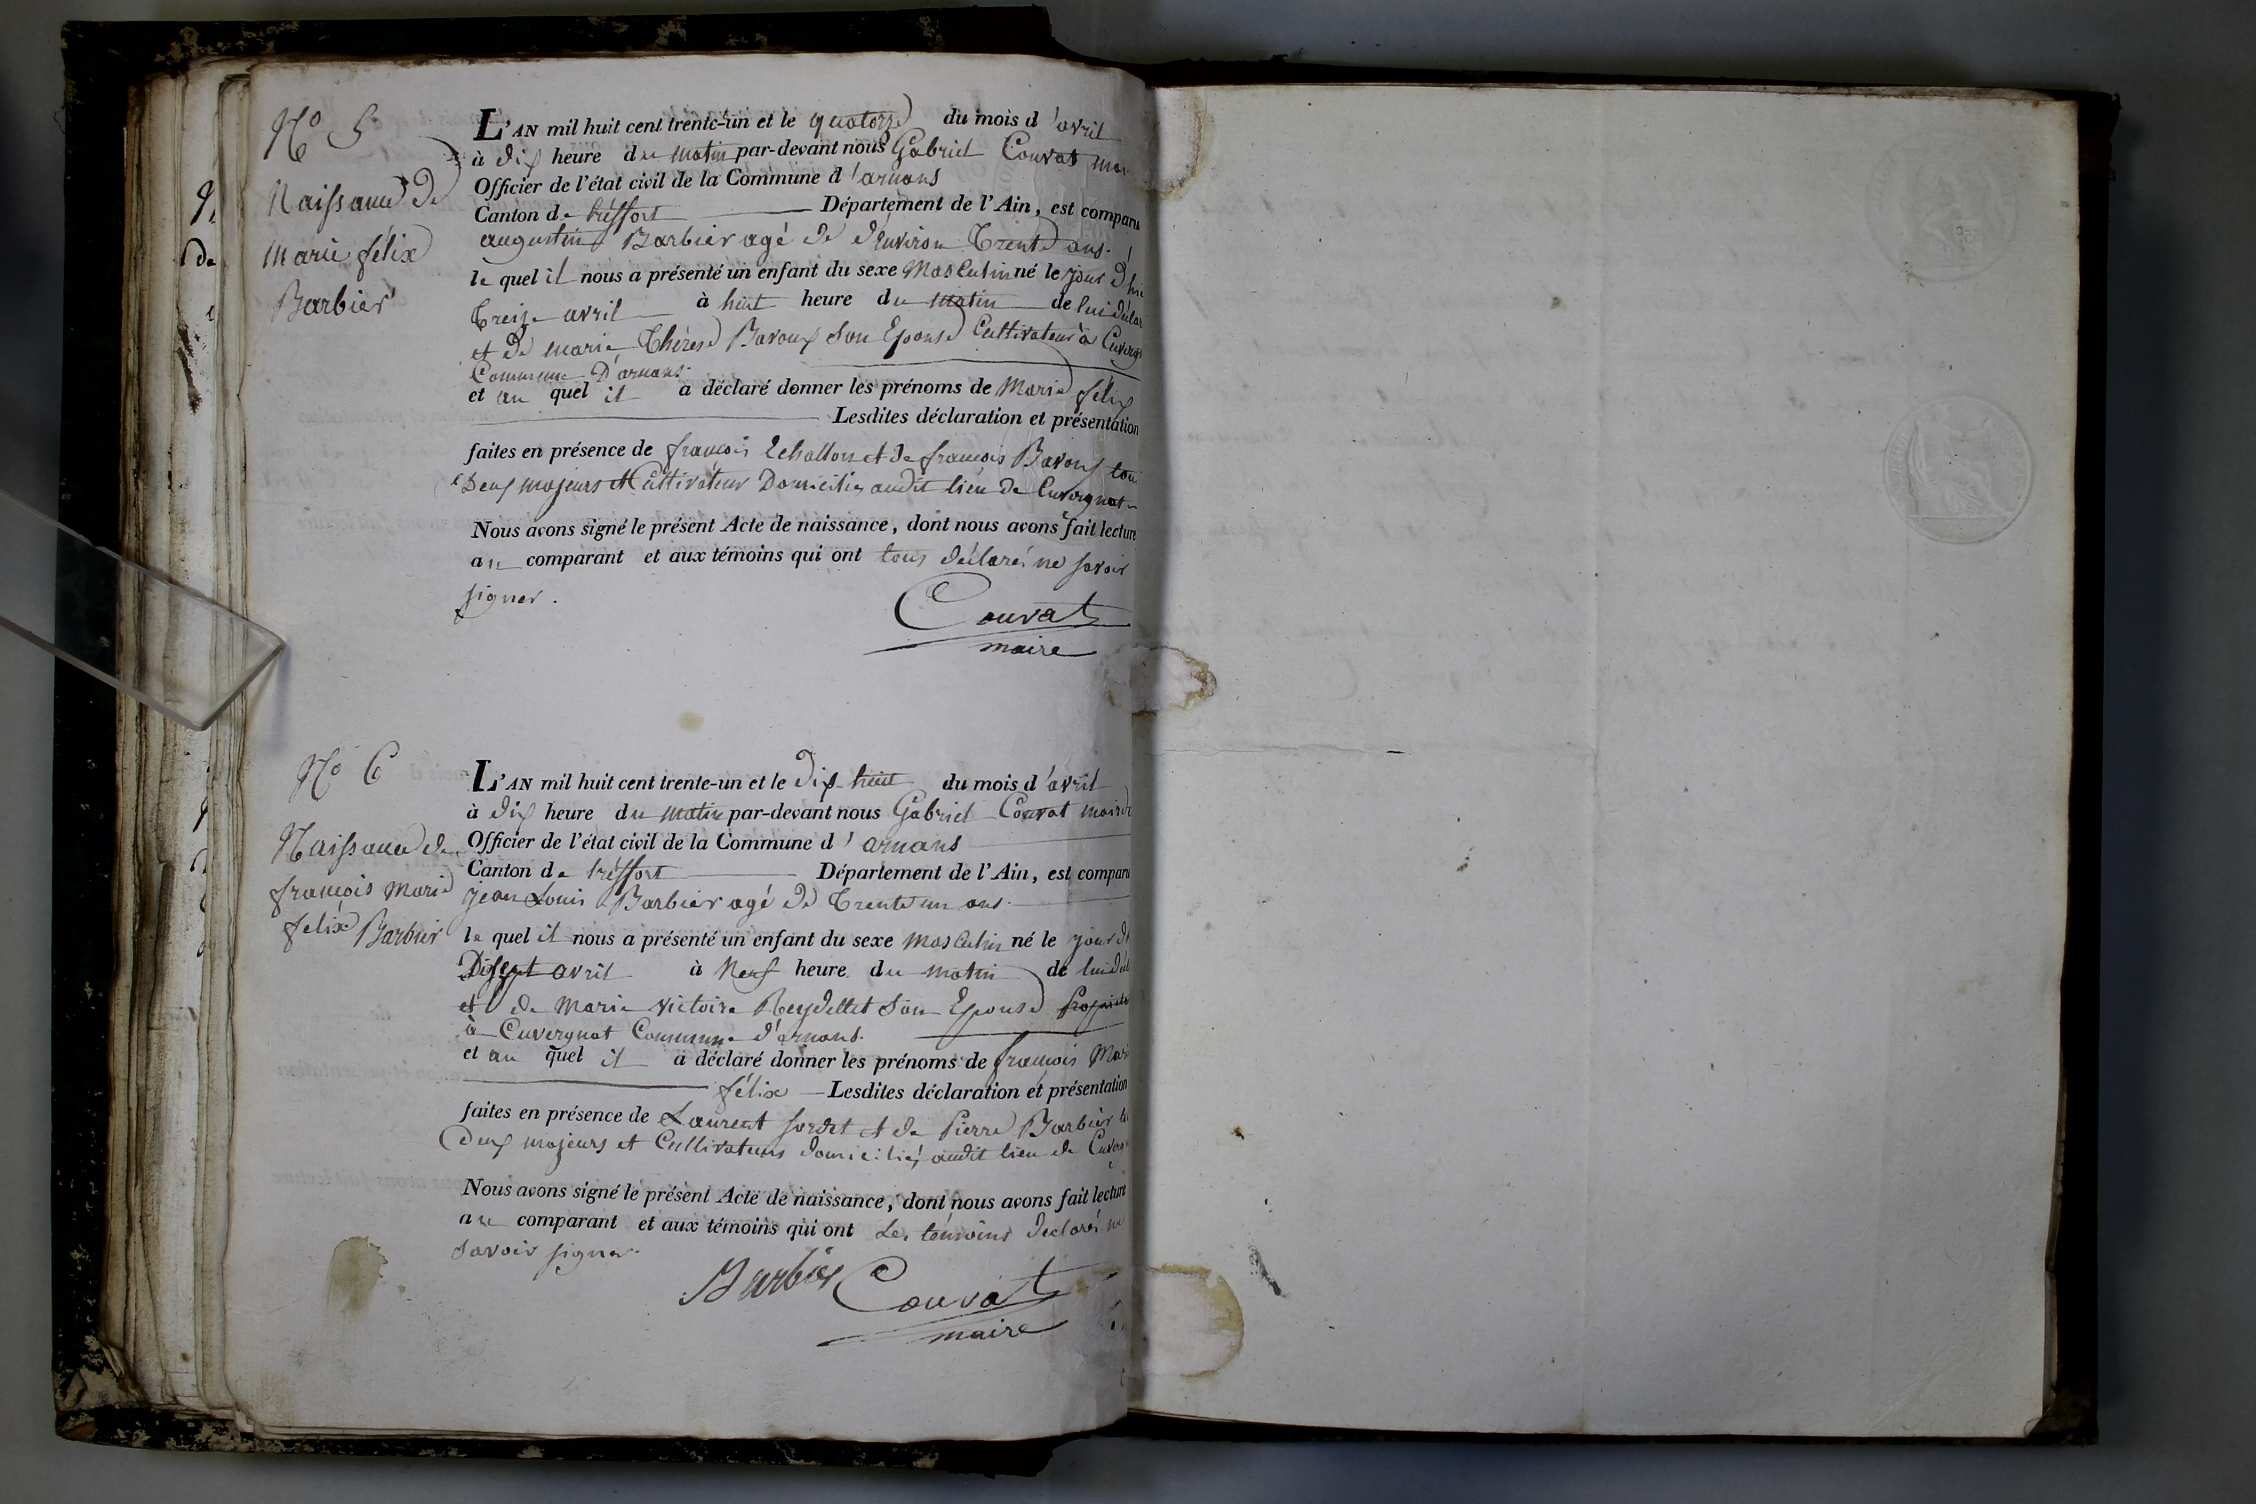 No 5
Naissance de
marie félix
Barbier
L'AN mil huit cent trente-un et le quatorze du mois d'avril
à dix heure du matin par-devant nous Gabriel Couvat
Officier de l'état civil de la Commune d'arnans
Canton de tréffort Département de l'Ain, est comparu
augustin Barbier agé de d'environ trente ans.
le quel il nous a présenté un enfant du sexe masculin né le jour d'hie
treize avril à huit heure du matin de lui
et de marie thérèse Bavoux son Epouse Cultivateur à
Commune D'arnans.
et au quel il a déclaré donner les prénoms de marie félix
Lesdites déclaration et présentation
faites en présence de françois Echallon et de françois Bavoux
Deux majeurs et Cultivateur Domiciliés audit lieu de Cuvergnat
Nous avons signé le présent Acte de naissance, dont nous avons fait lecture
au comparant et aux témoins qui ont tous déclaré ne savoir
signer.
Couvat
maire
No 6
Naissance de
françois marie
félix Barbier
L'AN mil huit cent trente-un et le dix huit du mois d'avril
à dix heure du matin par-devant nous Gabriel Couvat maire
Officier de l'état civil de la Commune d'arnans
Canton de tréffort Département de l'Ain, est comparu
jean Louis Barbier agé de trente un ans.
le quel il nous a présenté un enfant du sexe masculin né le jour
Dix sept avril à Neuf heure du matin de lui
et de marie victoire Reydellet son Epouse
à Cuvergnat Commune d'arnans.
et au quel il a déclaré donner les prénoms de françois
félix Lesdites déclaration et présentation
faites en présence de Laurent sordet et de Pierre Barbier
Deux majeurs et Cultivateurs domiciliés audit lieu de
Nous avons signé le présent Acte de naissance, dont nous avons fait lecture
au comparant et aux témoins qui ont Les témoins déclaré ne
savoir signer.
Barbier Couvat
maire